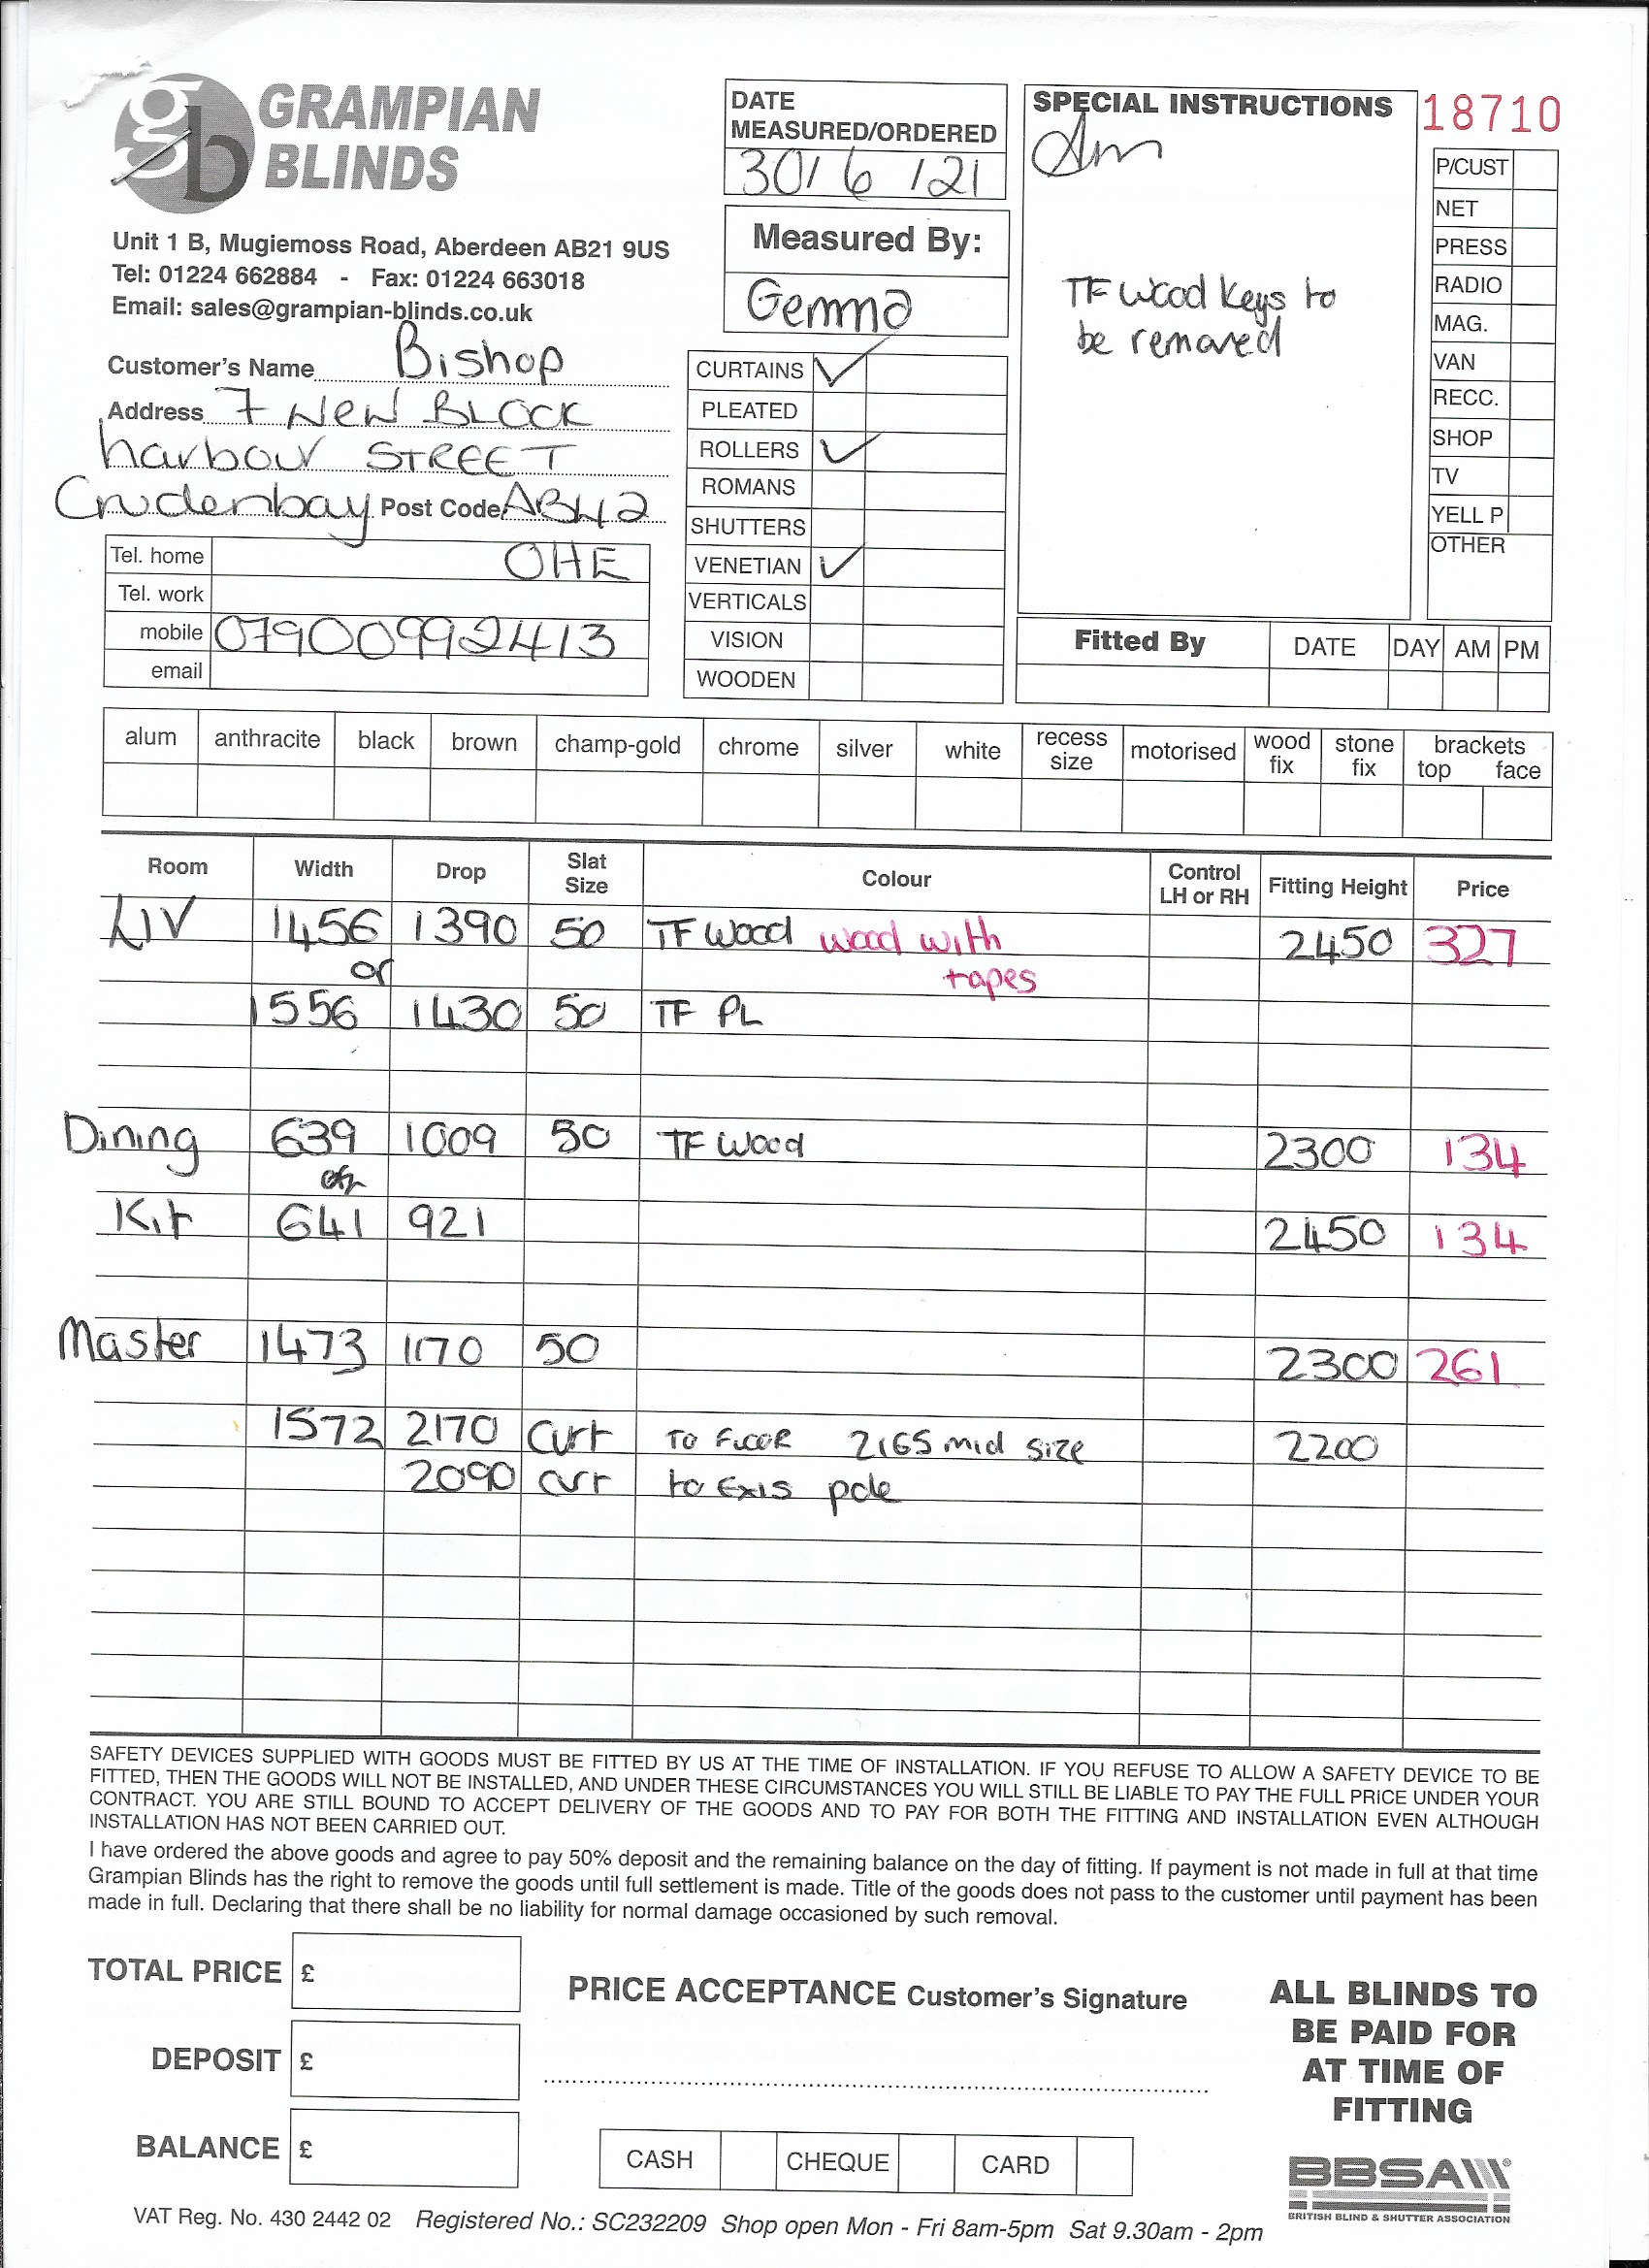 GRAMPIAN
BLINDS
Unit 1 B, Mugiemoss Road, Aberdeen AB21 9US
Tel: 01224 662884 - Fax: 01224 663018
Email: sales@grampian-blinds.co.uk
DATE
MEASURED/ORDERED
30/6/21
Measured By:
Gemma
SPECIAL INSTRUCTIONS
TF Wood Keys to
be removed
18710
P/CUST
NET
PRESS
RADIO
MAG.
VAN
RECC.
SHOP
TV
YELL P
OTHER
Customer's Name Bishop
Address 7 New BLOCK
harbour STREET
Crudenbay Post Code AB42
0HE
Tel. home
Tel. work
mobile 07900992413
email
CURTAINS ✓
PLEATED
ROLLERS ✓
ROMANS
SHUTTERS
VENETIAN ✓
VERTICALS
VISION
WOODEN
Fitted By DATE DAY AM PM
alum anthracite black brown champ-gold chrome silver white recess size motorised wood fix stone fix brackets top face
Room Width Drop Slat Size Colour Control LH or RH Fitting Height Price
LIV 1456 1390 50 TF Wood wood with 2450 327
or tapes
1556 1430 50 TF PL
Dining 639 1009 50 TF Wood 2300 134
Kit 641 921 2450 134
Master 1473 1170 50 2300 261
1572 2170 Curt TO FLOOR 2165 mid size 2200
2090 curr to Exis pole
SAFETY DEVICES SUPPLIED WITH GOODS MUST BE FITTED BY US AT THE TIME OF INSTALLATION. IF YOU REFUSE TO ALLOW A SAFETY DEVICE TO BE
FITTED, THEN THE GOODS WILL NOT BE INSTALLED, AND UNDER THESE CIRCUMSTANCES YOU WILL STILL BE LIABLE TO PAY THE FULL PRICE UNDER YOUR
CONTRACT. YOU ARE STILL BOUND TO ACCEPT DELIVERY OF THE GOODS AND TO PAY FOR BOTH THE FITTING AND INSTALLATION EVEN ALTHOUGH
INSTALLATION HAS NOT BEEN CARRIED OUT.
I have ordered the above goods and agree to pay 50% deposit and the remaining balance on the day of fitting. If payment is not made in full at that time
Grampian Blinds has the right to remove the goods until full settlement is made. Title of the goods does not pass to the customer until payment has been
made in full. Declaring that there shall be no liability for normal damage occasioned by such removal.
TOTAL PRICE £
DEPOSIT £
BALANCE £
PRICE ACCEPTANCE Customer's Signature
CASH CHEQUE CARD
ALL BLINDS TO
BE PAID FOR
AT TIME OF
FITTING
BBSA
BRITISH BLIND & SHUTTER ASSOCIATION
VAT Reg. No. 430 2442 02 Registered No.: SC232209 Shop open Mon - Fri 8am-5pm Sat 9.30am - 2pm